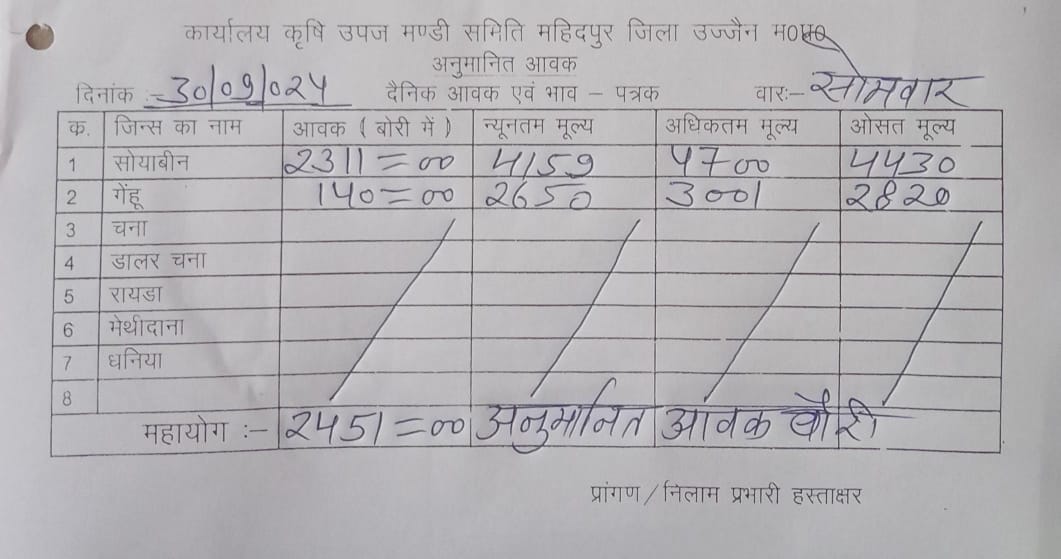 कार्यालय कृषि उपज मण्डी समिति महिदपुर जिला उज्जैन म०प्र०
अनुमानित आवक
दिनांक :- 30/09/024 दैनिक आवक एवं भाव – पत्रक वारः- सोमवार
क. जिन्स का नाम आवक ( बोरी में ) न्यूनतम मूल्य अधिकतम मूल्य ओसत मूल्य
1 सोयाबीन 2311=00 4159 4700 4430
2 गेंहू 140=00 2650 3001 2820
3 चना
4 डालर चना
5 रायडा
6 मेथीदाना
7 धनिया
8
महायोग :- 2451=00 अनुमानित आवक बौरी
प्रांगण / निलाम प्रभारी हस्ताक्षर